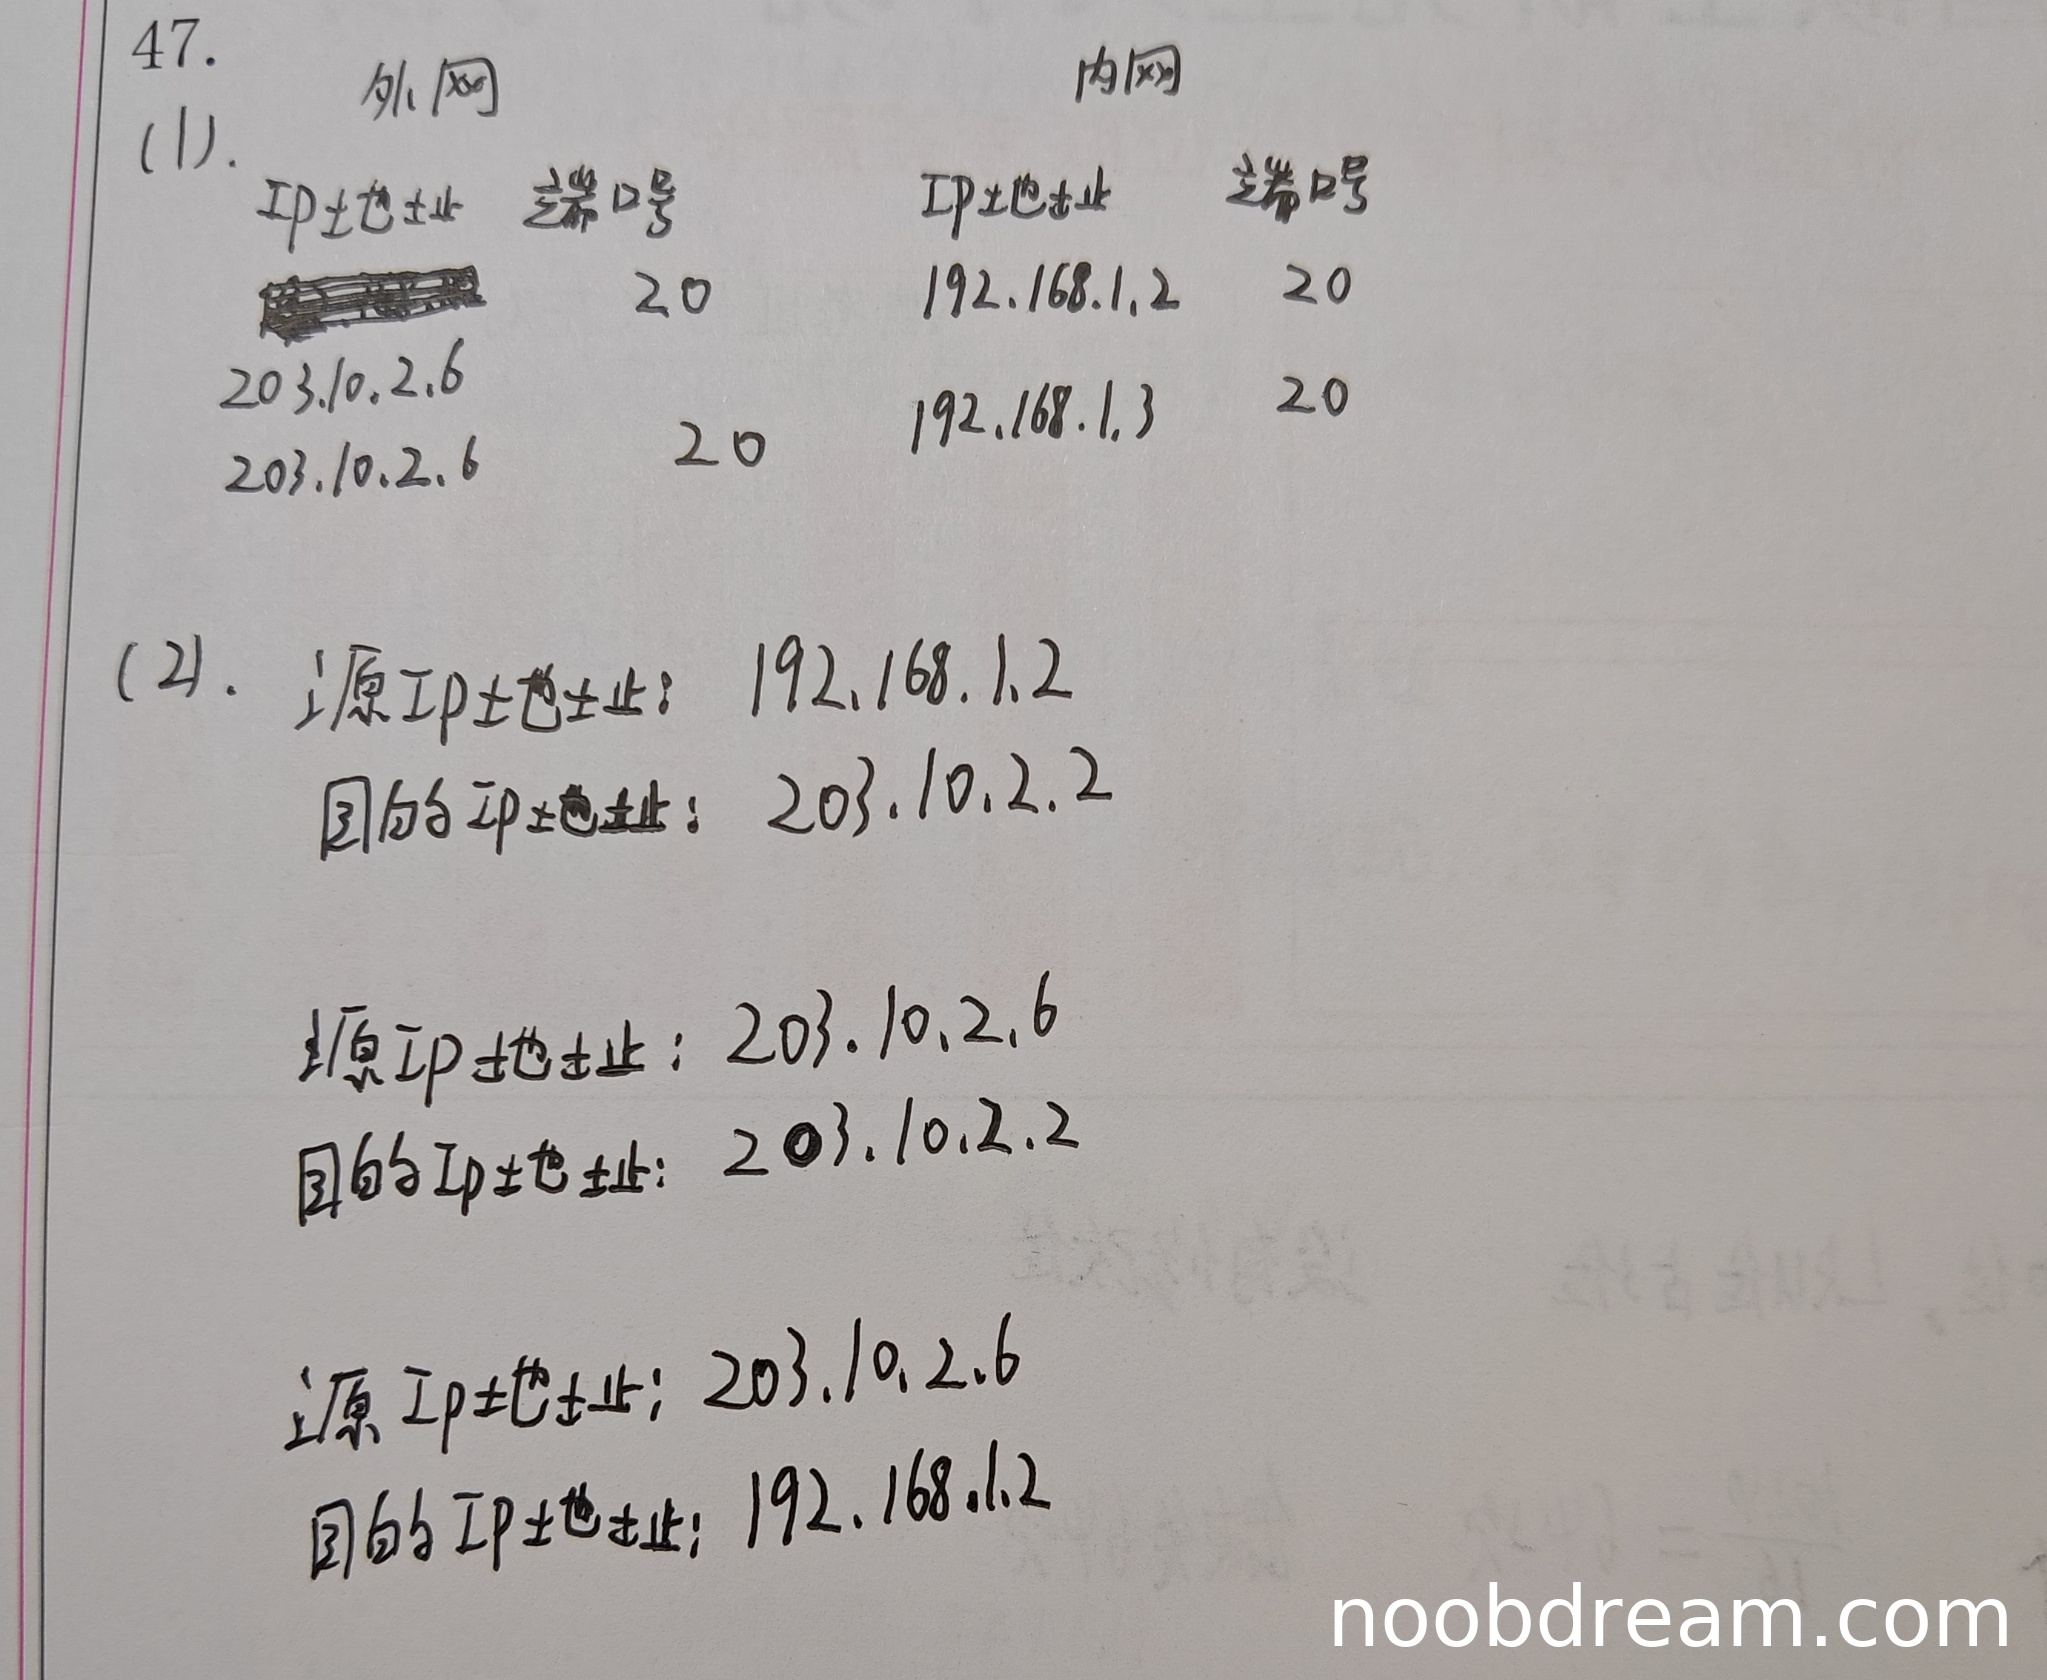 47.
外网 内网
(1). IP地址 端口号 IP地址 端口号
20 192.168.1.2 20
203.10.2.6
192.168.1.3 20
203.10.2.6 20
(2). 源IP地址: 192.168.1.2
目的IP地址: 203.10.2.2
源IP地址: 203.10.2.6
目的IP地址: 203.10.2.2
源IP地址: 203.10.2.6
目的IP地址: 192.168.1.2
noobdream.com